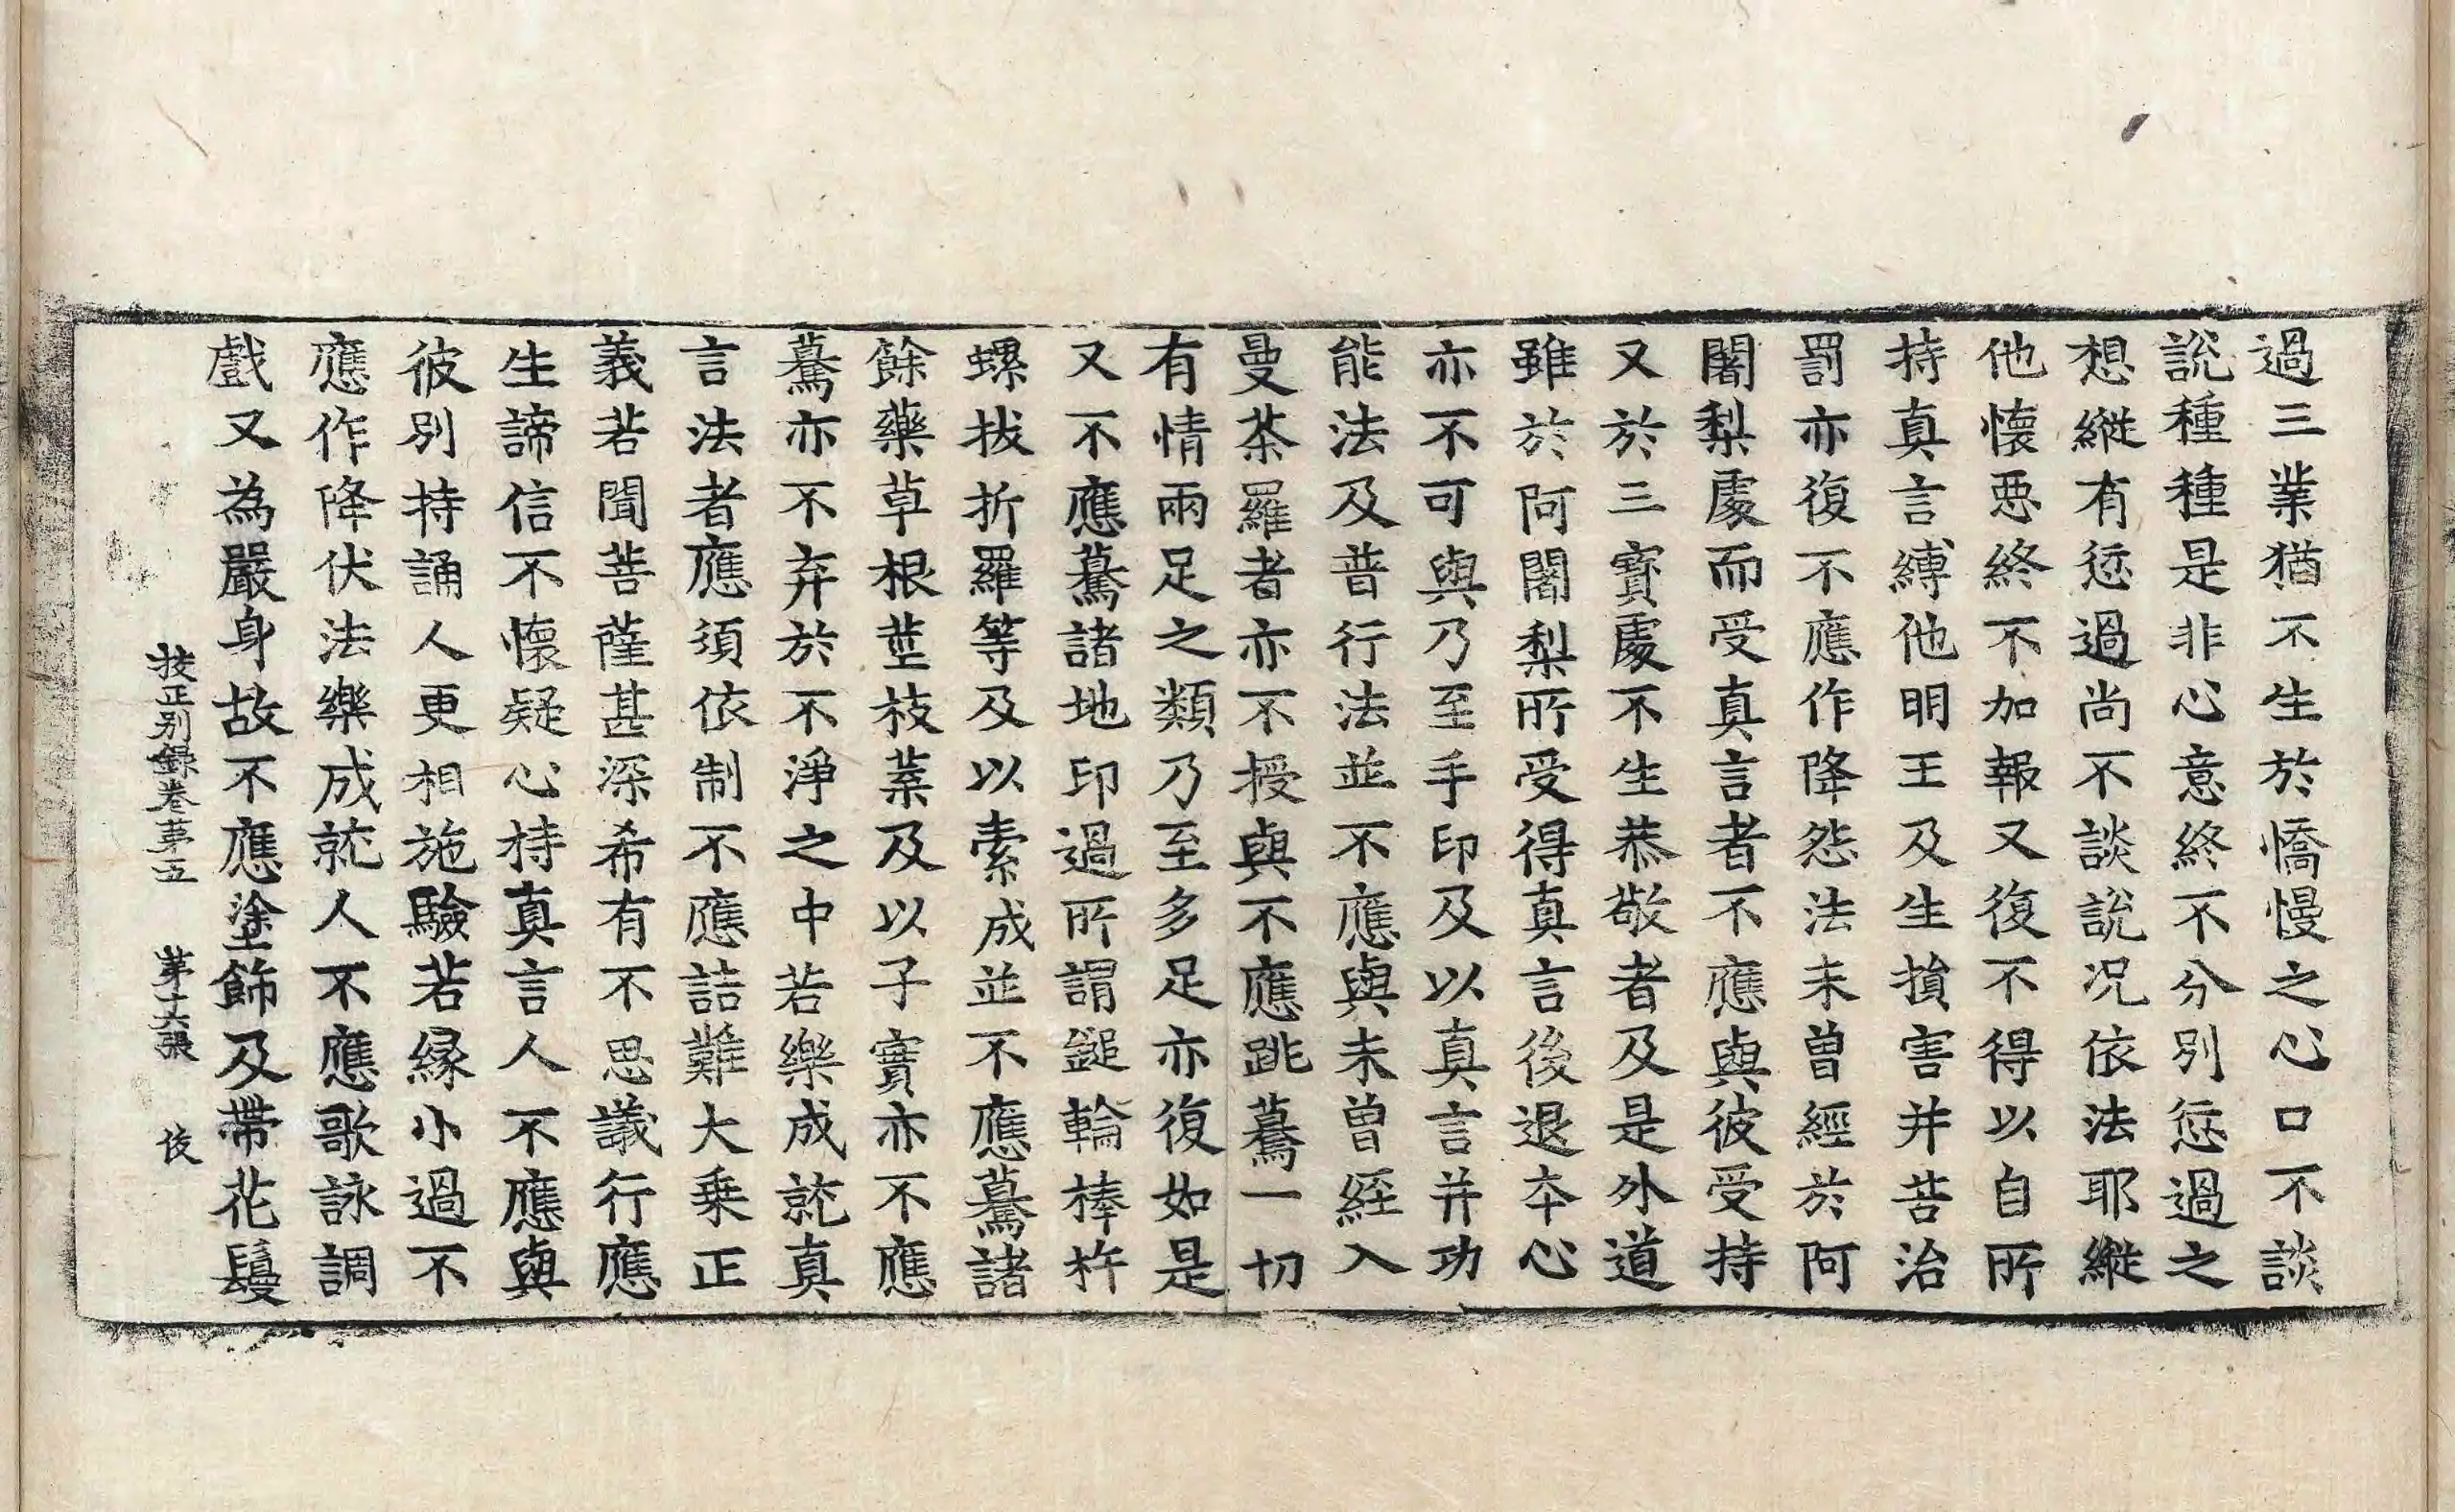 過三業猶不生於憍慢之心口不談
說種種是非心意終不分別愆過之
想縱有愆過尚不談說况依法耶縱
他懷惡終不加報又復不得以自所
持真言縛他明王及生損害并苦治
罰亦復不應作降怨法未曾經於阿
闍梨處而受真言者不應與彼受持
又於三寶處不生恭敬者及是外道
雖於阿闍梨所受得真言後退夲心
亦不可與乃至手印及以真言并功
能法及普行法並不應與未曾経入
曼茶羅者亦不授與不應跳驀一切
有情兩足之類乃至多足亦復如是
又不應驀諸地印過所謂鎚輪棒杵
螺拔折羅等及以素成並不應驀諸
餘藥草根莖枝葉及以子實亦不應
驀亦不弃於不淨之中若樂成就真
言法者應須依制不應詰難大乗正
義若聞菩薩甚深希有不思議行應
生諦信不懷疑心持真言人不應與
彼別持誦人更相施驗若縁小過不
應作降伏法樂成就人不應歌詠調
戲又為嚴身故不應塗飾及帶花鬘
挍正別録卷苐五 苐十六張 俊